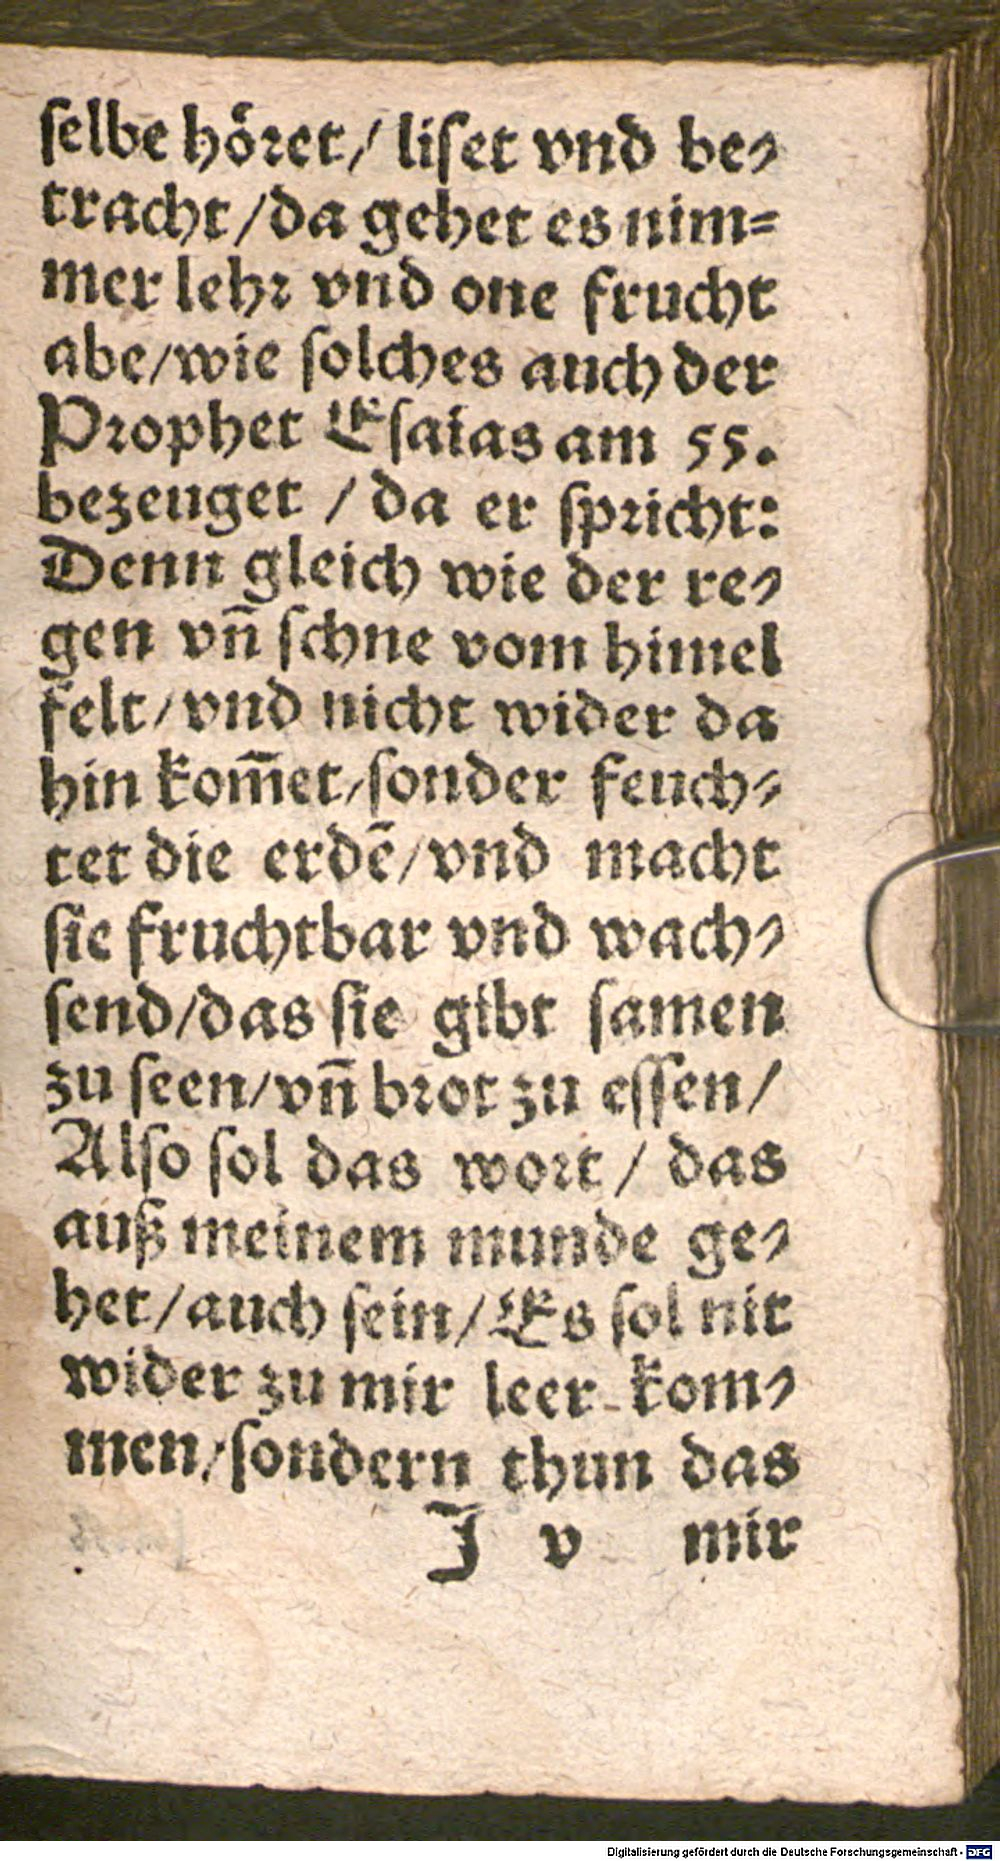 ſelbe hoͤret / liſet vnd be⸗
tracht / da gehet es nim⸗
mer lehr vnd one frucht
abe / wie ſolches auch der
Prophet Eſaias am 55.
bezeuget / da er ſpricht:
Denn gleich wie der re⸗
gen vñ ſchne vom himel
felt / vnd nicht wider da
hin kom̃et / ſonder feuch⸗
tet die erdẽ / vnd macht
ſie fruchtbar vnd wach⸗
ſend / das ſie gibt ſamen
zu ſeen / vñ brot zu eſſen /
Alſo ſol das wort / das
auß meinem munde ge⸗
het / auch ſein / Es ſol nit
wider zu mir leer kom⸗
men / ſondern thun das
J v mir
Digitalisierung gefördert durch die Deutsche Forschungsgemeinschaft - DFG